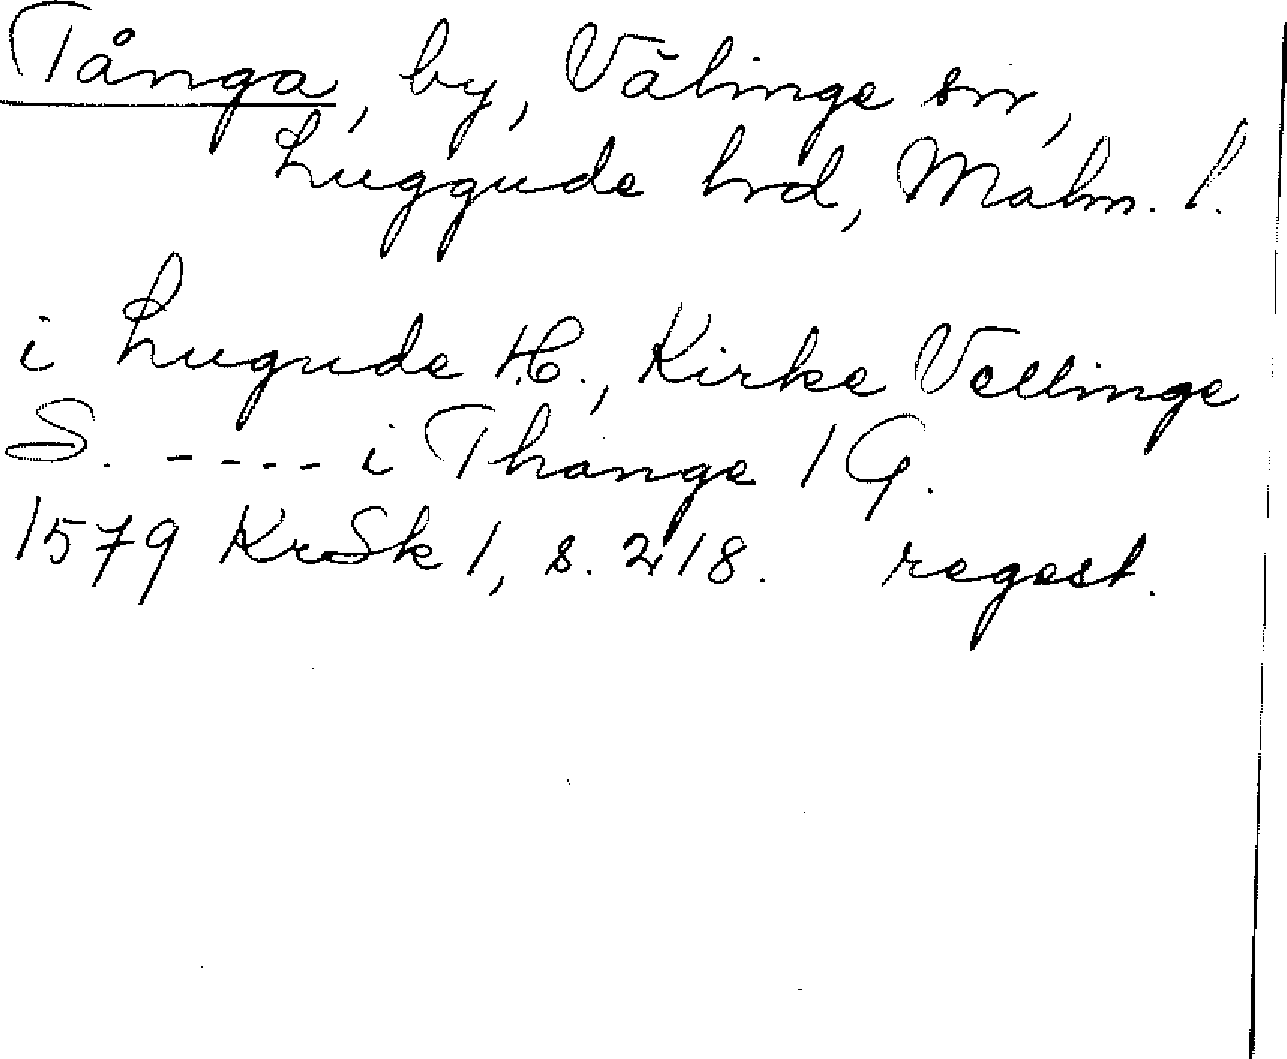 Tånga, by, Välinge sn,
Luggude hrd, Malm. l.
i Lugude H., Kirke Vellinge
S. ---- i Thange 1 G.
1579 KrSk 1, s. 218. regest.